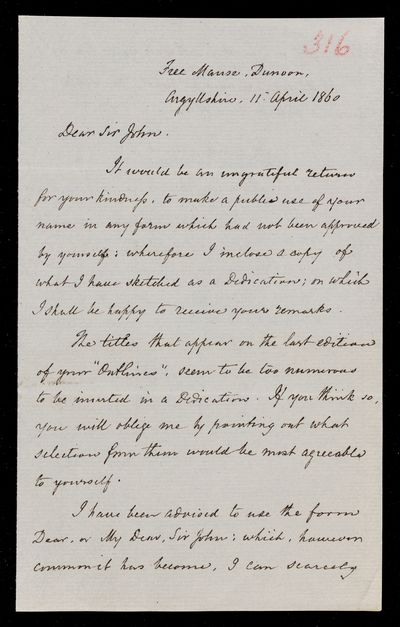 316
Free Manse, Dunoon,
Argyllshire, 11 April 1860
Dear Sir John.
It would be an ungrateful return
for your kindness, to make a public use of your
name in any form which had not been approved
by yourself: wherefore I inclose a copy of
what I have sketched as a Dedication; on which
I shall be happy to receive your remarks.
The titles that appear on the last edition
of your "Outlines", seem to be too numerous
to be inserted in a Dedication. If you think so,
you will oblige me by pointing out what
selection from them would be most agreeable
to yourself.
I have been advised to use the form
Dear, or My Dear, Sir John: which, however
common it has become, I can scarcely